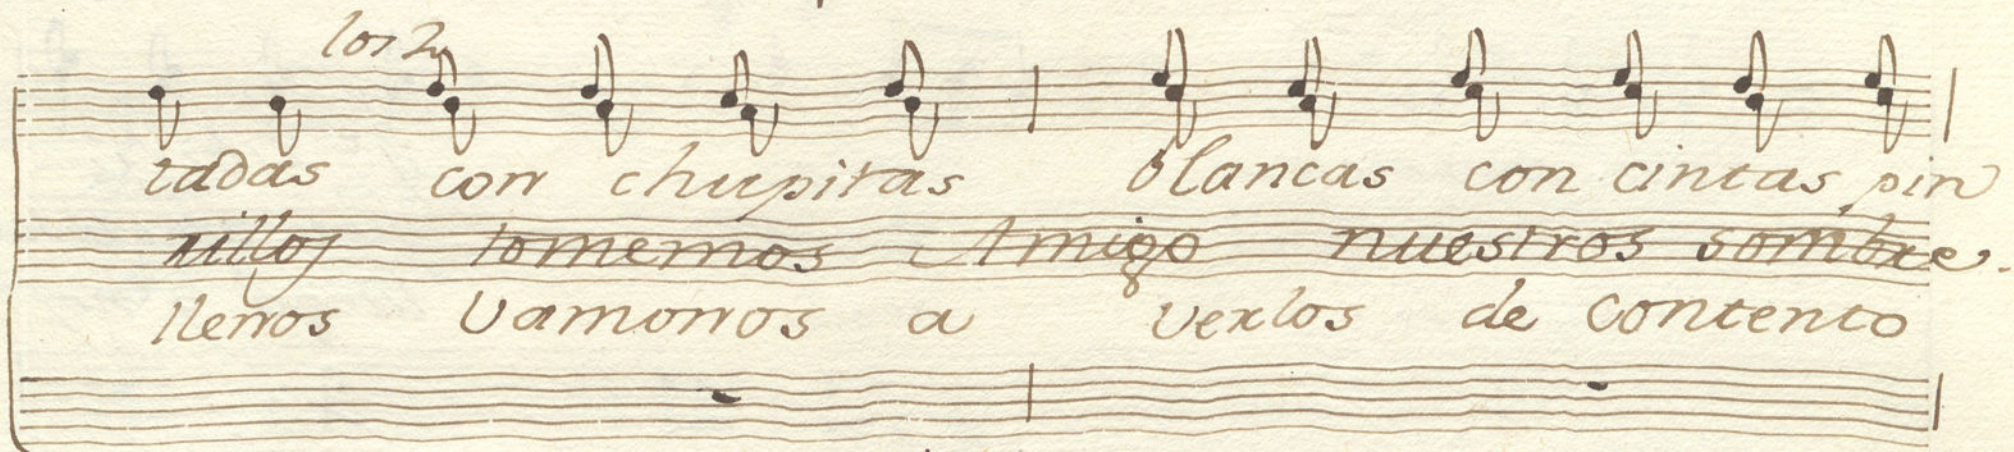 los 2
tadas con chupitas blancas con cintas pin
nillos tomemos Amigo nuestros sombre
llenos vamonos a verlos de contento